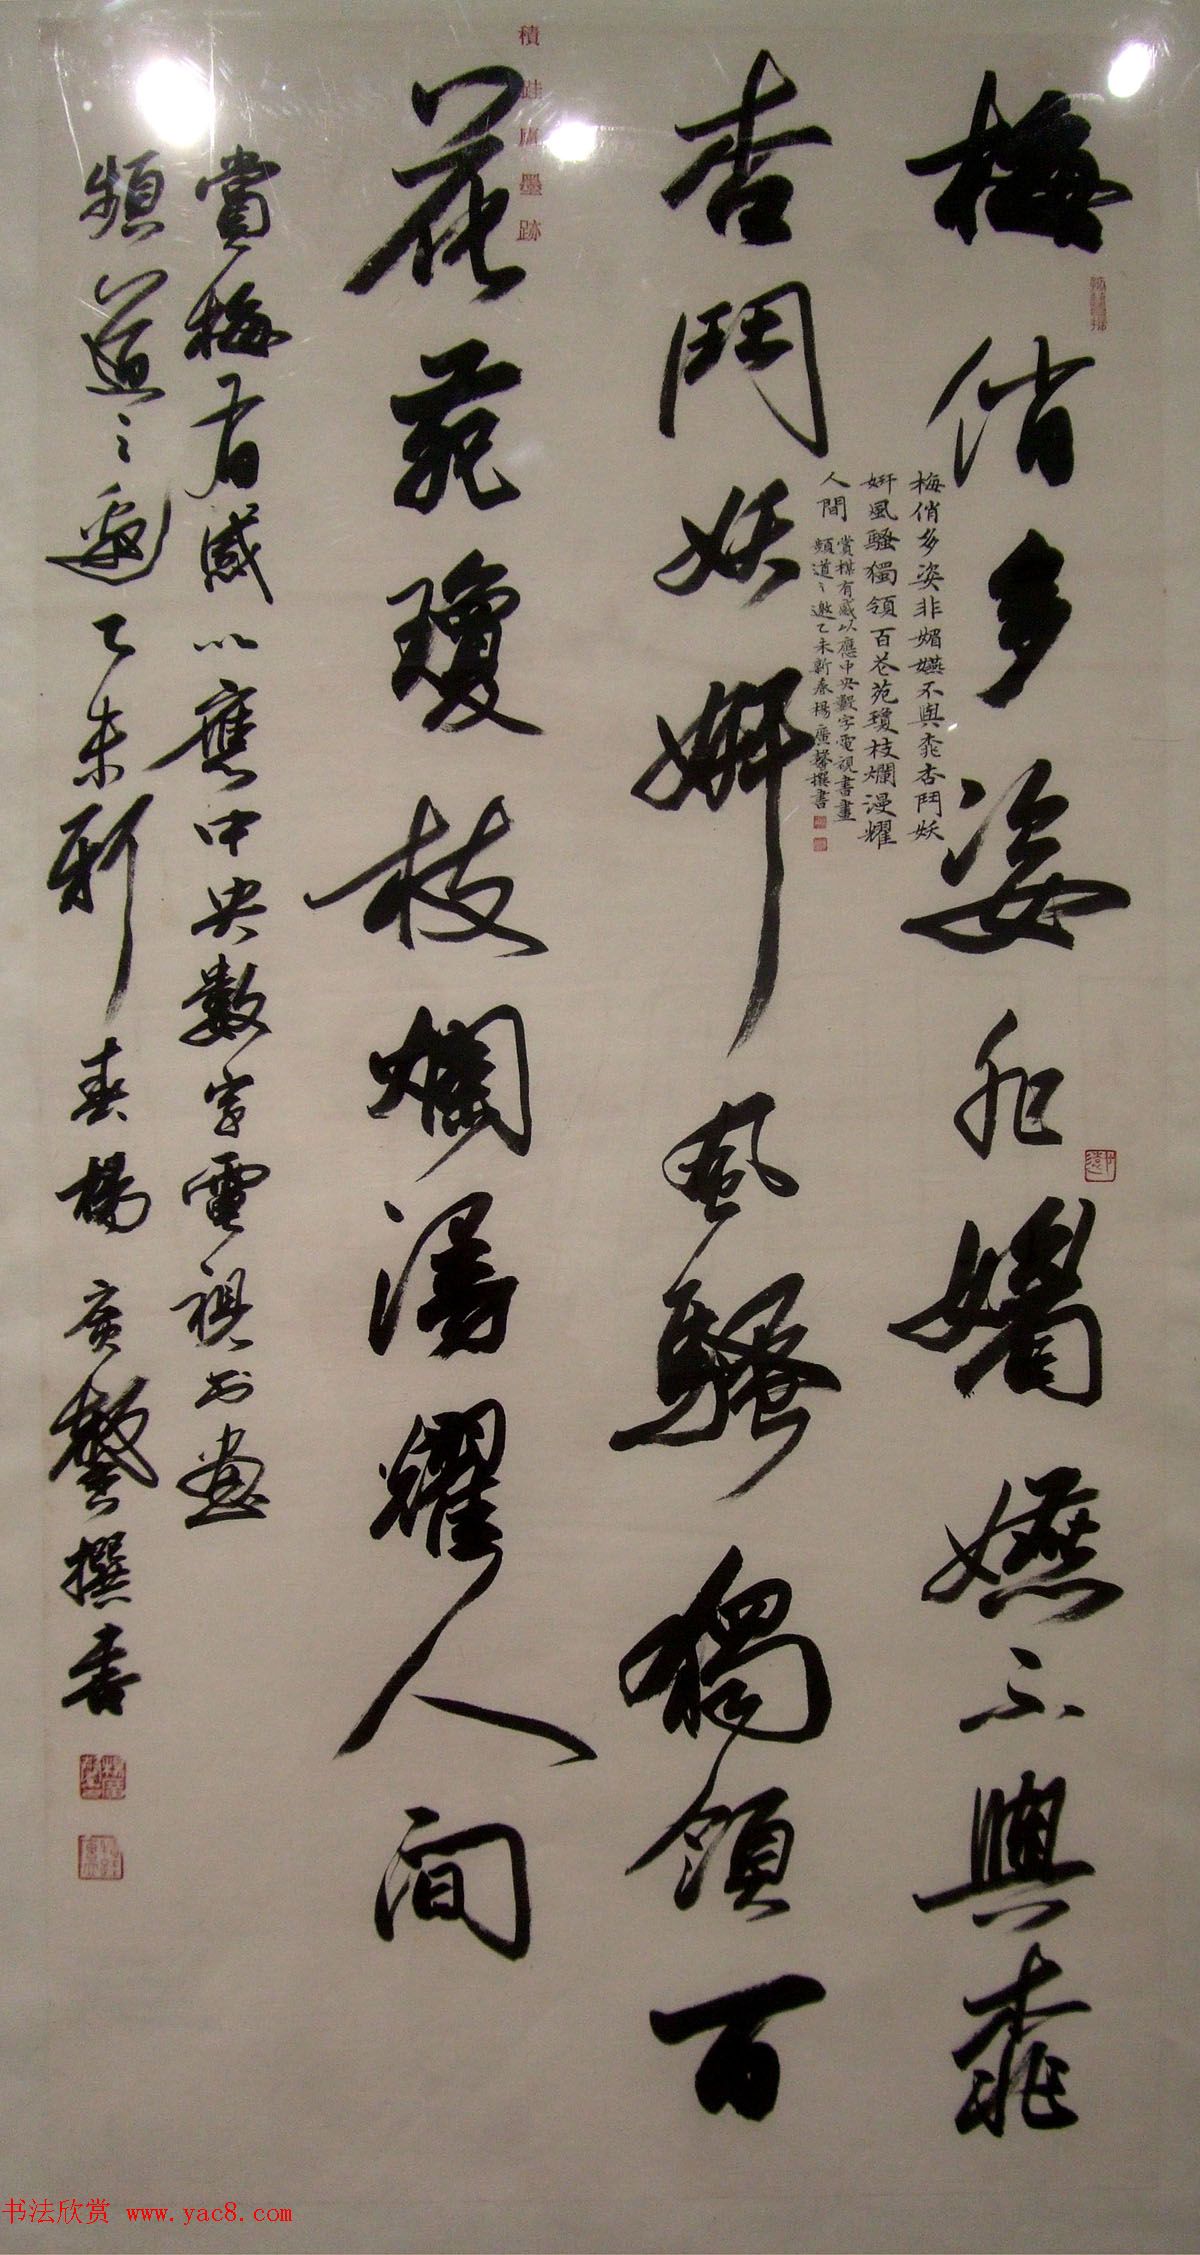 梅俏多姿非媚嬿不與桃
杏鬥妖妍風騷獨領百
花苑瓊枝爛漫耀人间
賞梅有感以應中央數字電視书畫
頻道之邀乙未新春楊廣馨撰書
梅俏多姿非媚嬿不與桃杏鬥妖
妍風騷獨領百花苑瓊枝爛漫耀
人間
賞楳有感以應中央數字電視書畫
頻道之邀乙未新春楊廣馨撰書
積跬廬墨跡
书法欣赏 www.yac8.com